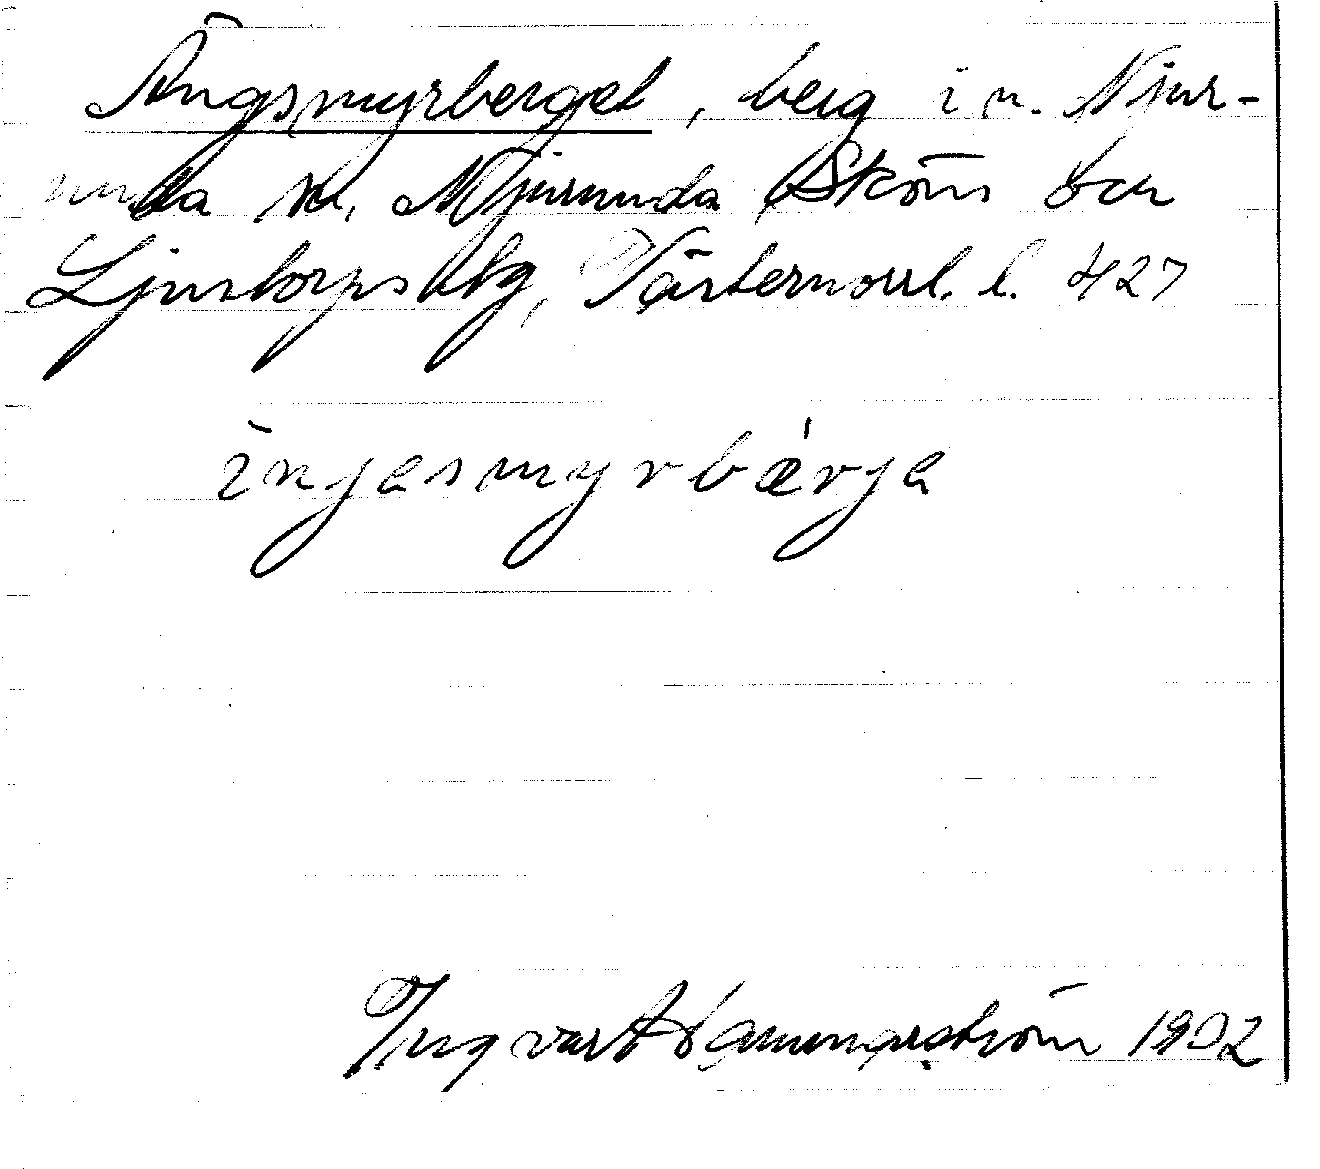 Ängsmyrberget, berg i n. Njur-
unda sn, Njurunda Sköns och
Ljustorps tlg, Västernorrl. l. 427
ìnjesmyrbærje
Ingvart Hammarström 1932